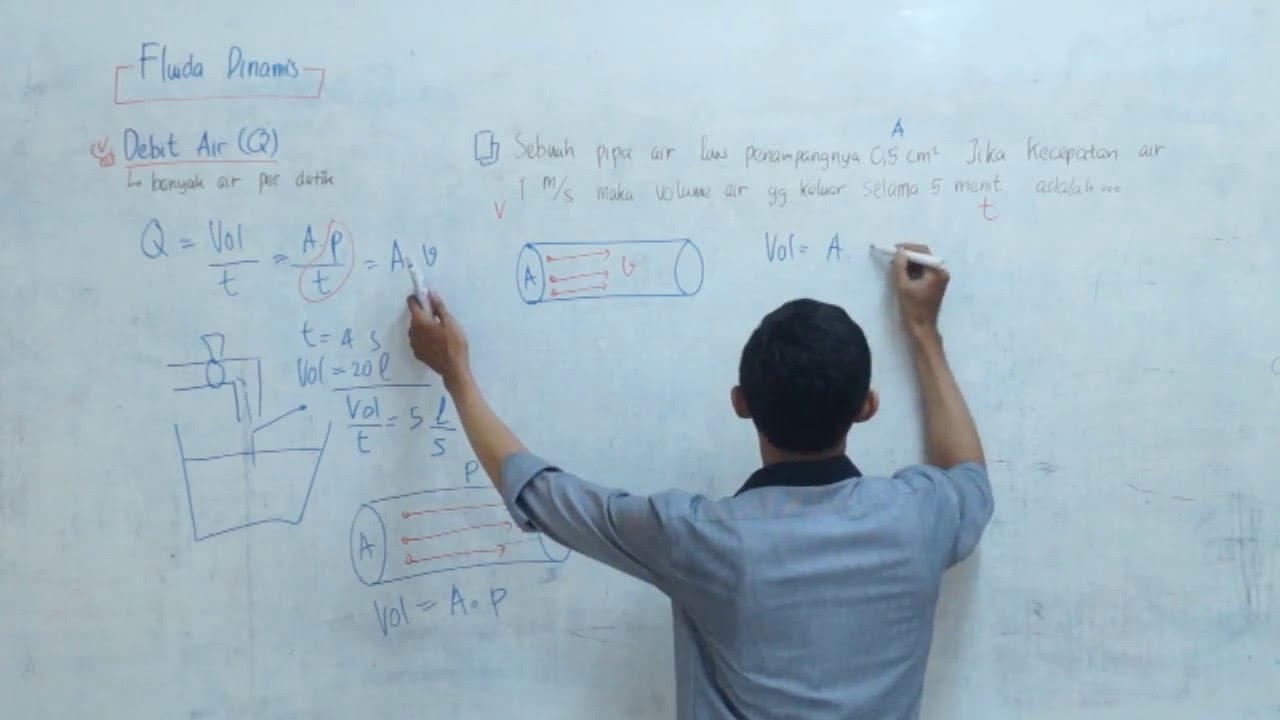 Fluida Dinamis
Debit Air (Q)
↳ banyak air per detik
Q = Vol/t = A.p/t = A.v
t = 4 s
Vol = 20 l
Vol/t = 5 l/s
p
A
Vol = A.p
A
Sebuah pipa air luas penampangnya 0,5 cm² Jika Kecepatan air
1 m/s maka volume air yg keluar selama 5 menit adalah...
v
t
A
v
Vol = A.